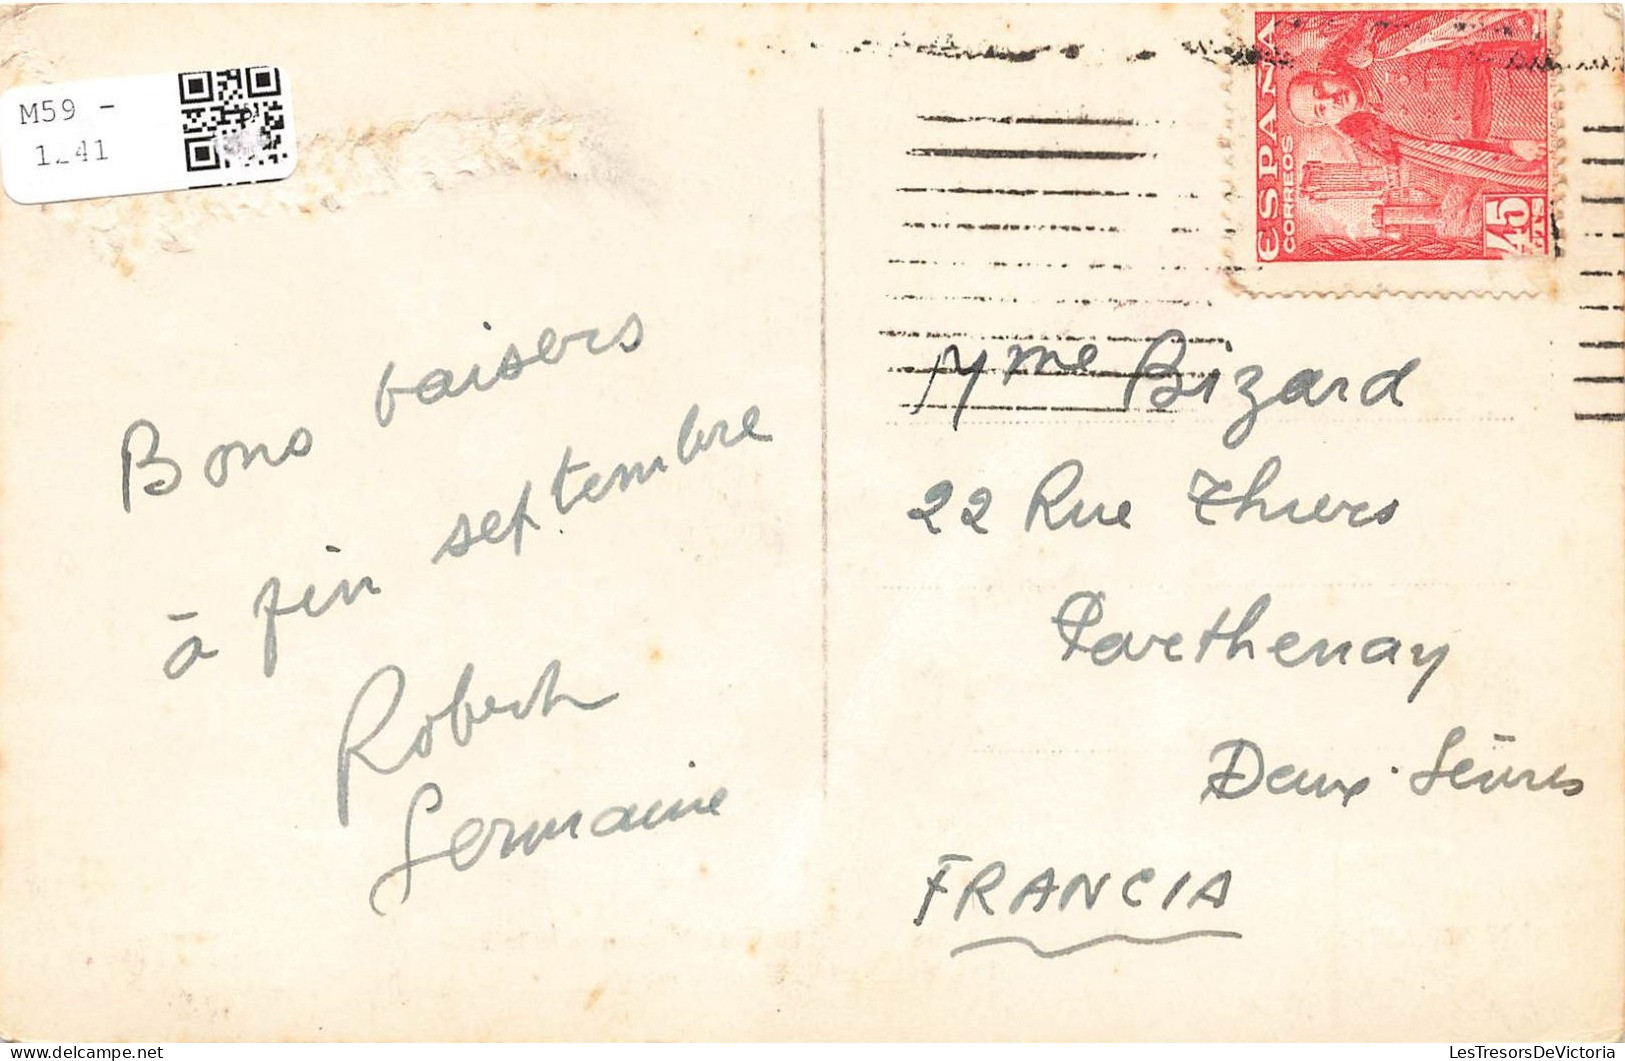 M59 -
ESPAÑA
CORREOS
45
CTS
Bons baisers
à fin septembre
Robert
Germaine
Mme Bizard
22 Rue Thiers
Parthenay
Deux-Sèvres
FRANCIA
LesTresorsDeVictoria